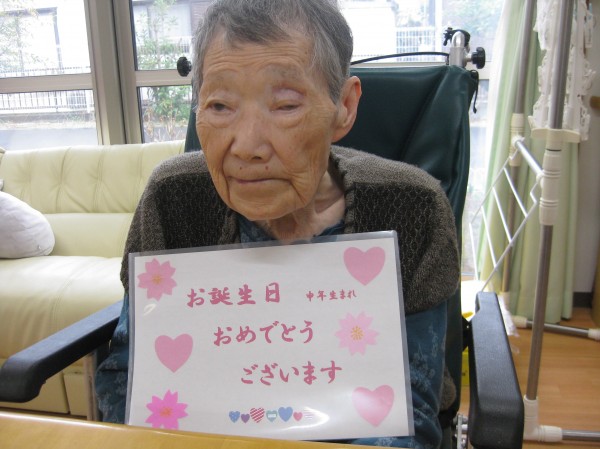 お誕生日 申年生まれ
おめでとう
ございます